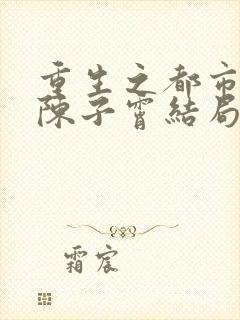 重生之都市
陈子霄結局
霜宸